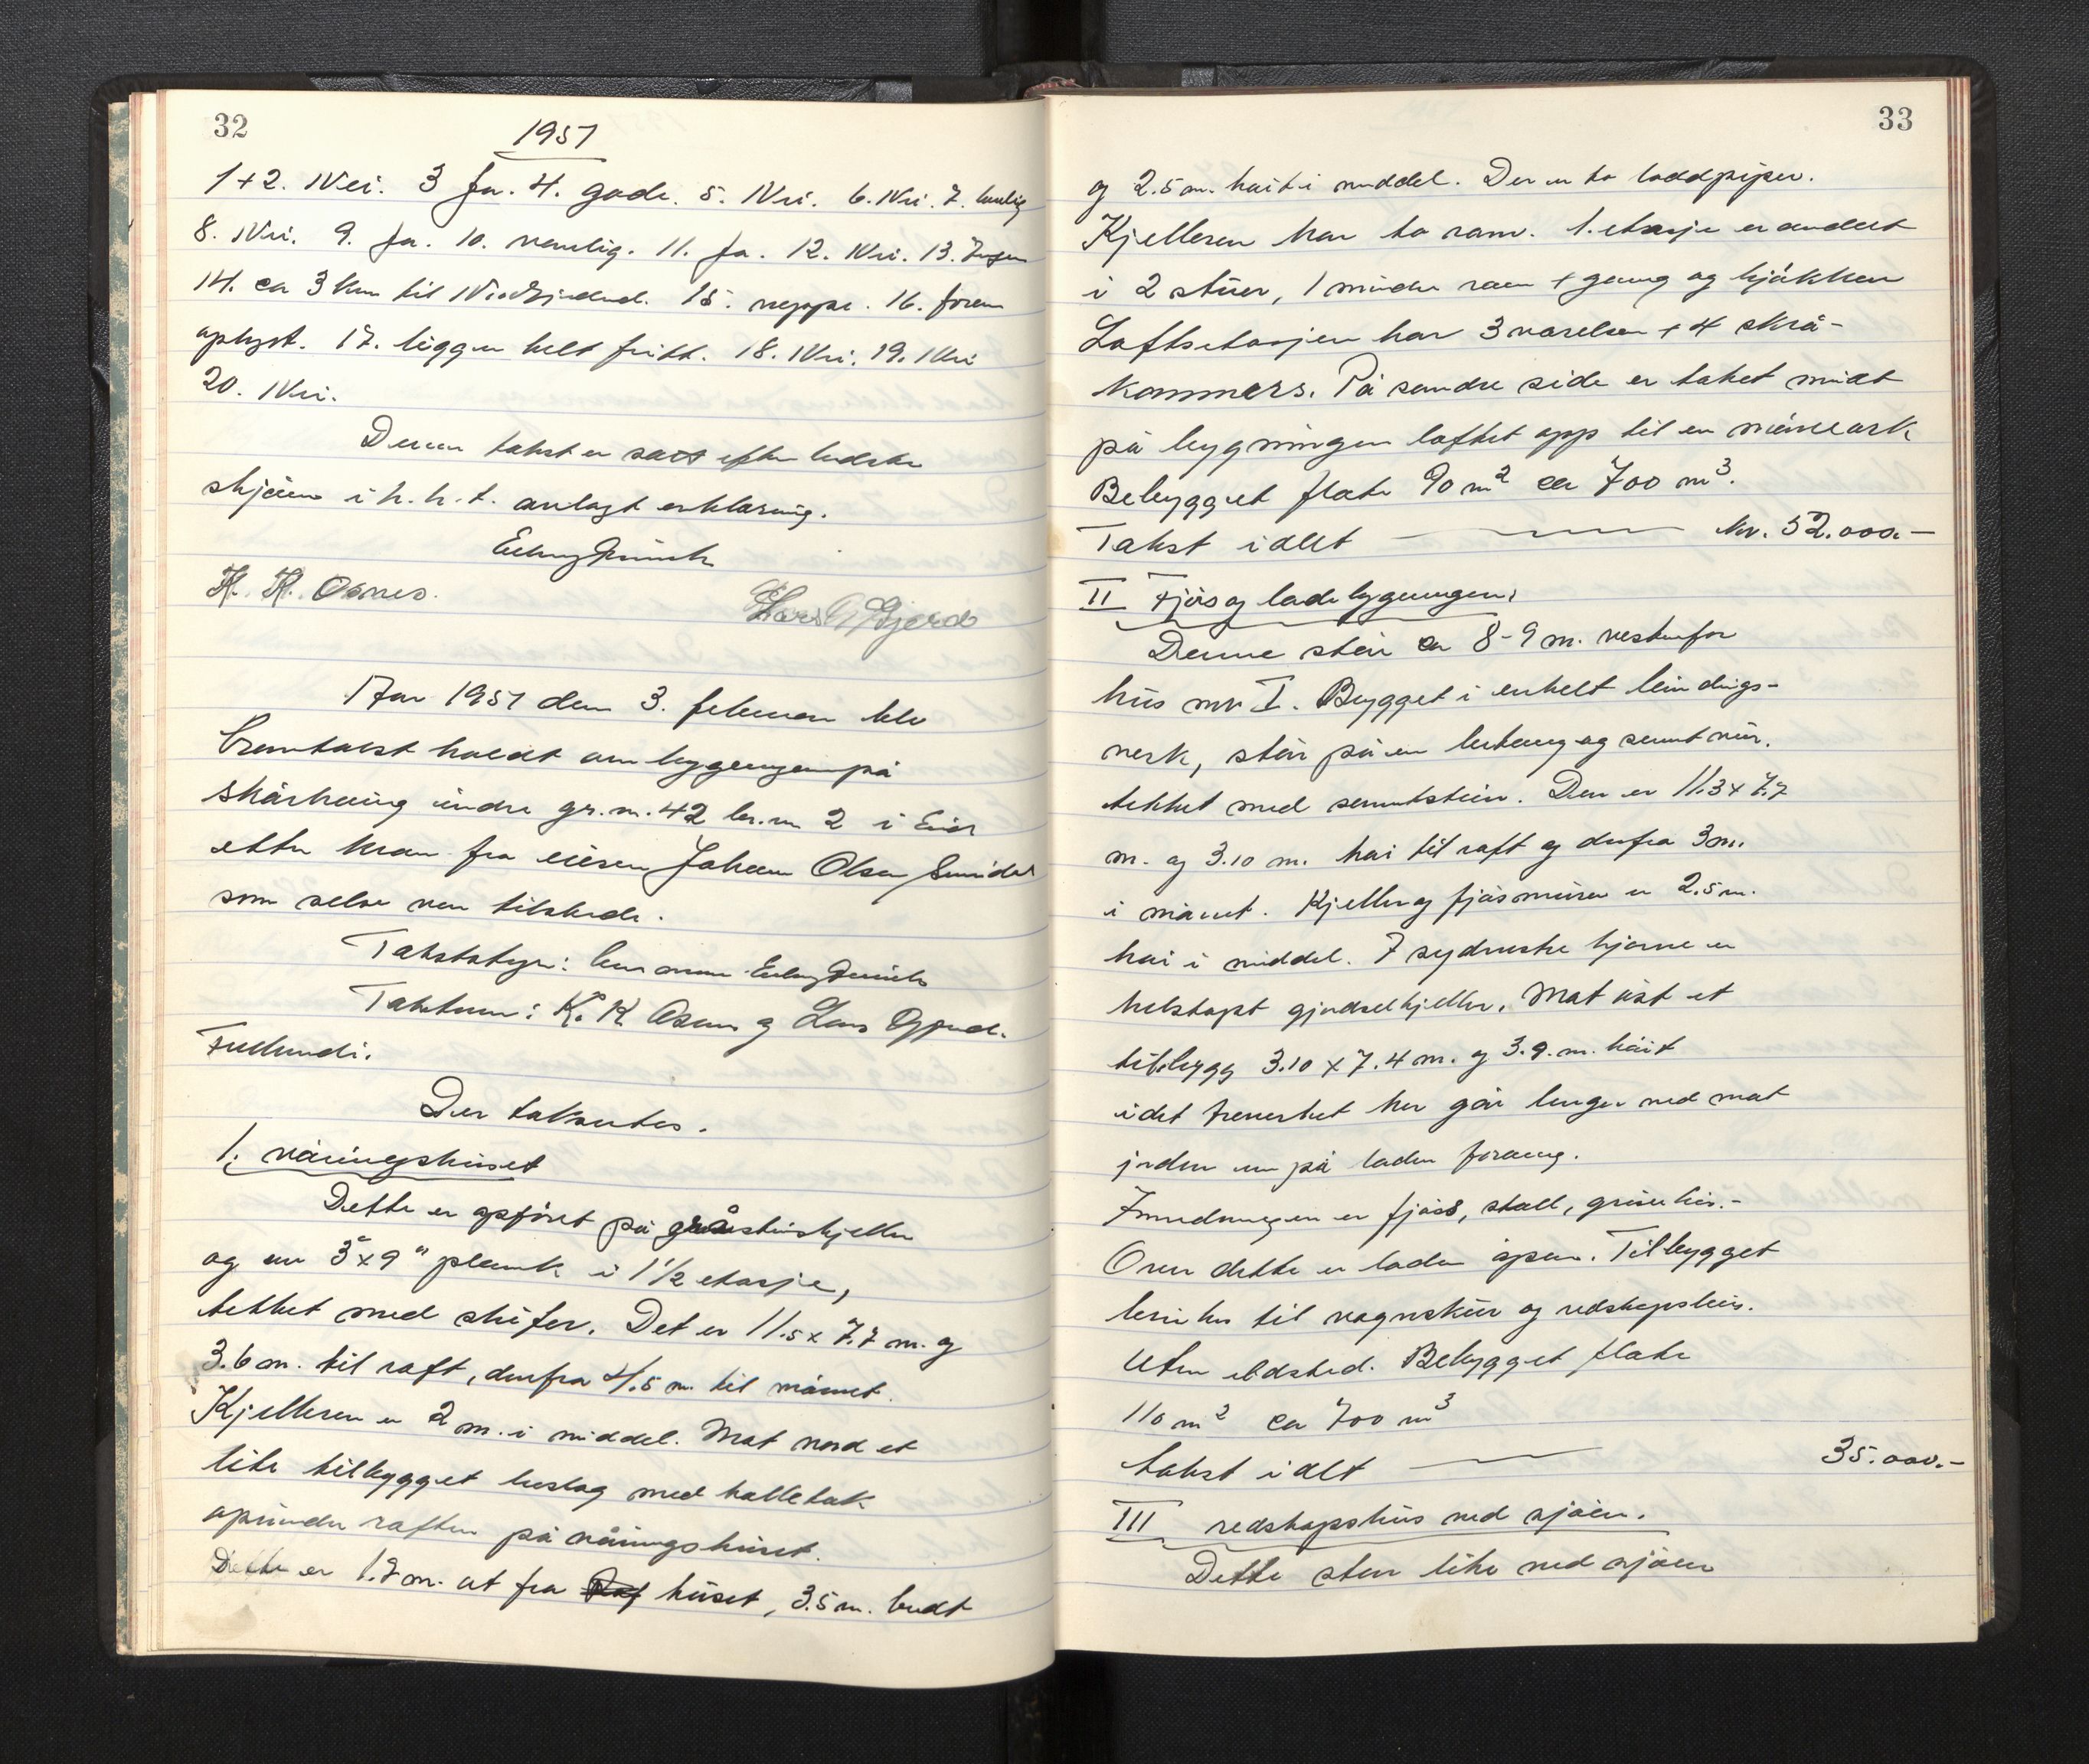 32
1951
1+2. Nei. 3 Ja. 4. gode. 5. Nei. 6. Nei. 7. vanlig
8. Nei. 9. Ja. 10. vanlig. 11. Ja. 12. Nei. 13. Ingen
14. ca 3 km til 15. neppe. 16. foran
oplyst. 17. ligger helt fritt. 18. Nei. 19. Nei
20. Nei.
Denne takst er satt efter bedste
skjønn i h. h. t. avlagt erklæring.
K. K. Osnes.
Lars Gjerd
Aar 1951 den 3. februar blev
branntakst holdt om bygningen på
indre gr. n. 42 br. n. 2 i Eid
etter krav fra eieren Johan Olsen
som selv var tilstede.
Takststyr: lensmann
Takstmenn: K. K. Osnes og Lars Gjerd.
Der taksertes.
1. våningshuset
Dette er opført på gråsteinskjeller
og av 3"x9" plank i 1½ etasje,
tekket med skifer. Det er 11.5x7.7 m. og
3.6 m. til raft, derfra 4.5 m. til mønet.
Kjelleren er 2 m. i middel. Mot nord et
lite tilbygget bislag med halletak
opunder raften på våningshuset.
Dette er 1.7 m. ut fra huset, 3.5 m. bredt
33
og 2.5 m. høit i middel. Der er to loddpiper.
Kjelleren har to rom. 1. etasje er inndelt
i 2 stuer, 1 mindre rom + gang og kjøkken
Loftsetasjen har 3 værelser + 4 skrå-
kommers. På søndre side er taket midt
på bygningen løftet opp til en møneark
Bebygget flate 90 m² ca 700 m³.
Takst i alt kr. 52.000.-
II Fjøs og ladebygningen.
Denne står ca 8-9 m. vestenfor
hus nr I. Bygget i enkelt bindings-
verk, står på en betong og sementmur.
tekket med sementstein. Den er 11.3x7.7
m. og 3.10 m. høi til raft og derfra 3 m.
i mønet. Kjeller og fjøsmuren er 2.5 m.
høi i middel. I sydvestre hjørne er
helstøpt gjødselkjeller. Mot øst et
tilbygg 3.10 x 7.4 m. og 3.9. m. høit
idet treverket her går lenger ned mot
jorden enn på laden forøvrig.
Innredningen er fjøss, stall, grisehus.-
Over dette er laden åpen. Tilbygget
benyttes til vognskur og redskapshus.
Uten ildsted. Bebygget flate
110 m² ca 700 m³
takst i alt 35.000.-
III redskapshus ved sjøen.
Dette står like ved sjøen